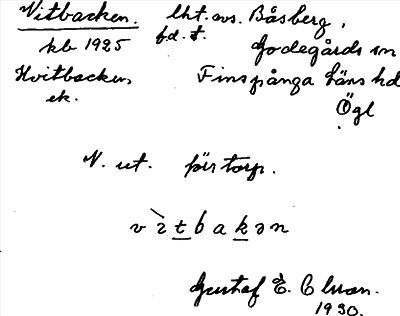 Vitbacken. lht. avs. Båsberg,
kb 1925 fd. t.
Godegårds sn
Hvitbacken, Finspånga läns hd
ek. Ögl
N. ut. för torp.
v ì t b a k ə n
Gustaf E. Clson.
1930.